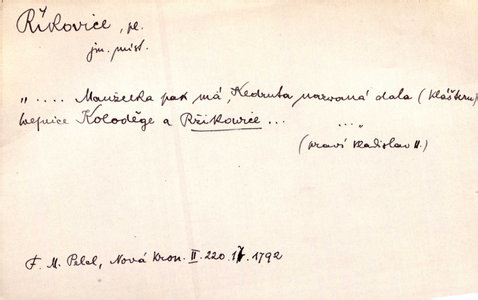 Říkovice, pl.
jm. míst.
„.... Manželka pak má, Kedruta nazvaná dala (klášteru)
wesnice Koloděge a Ržikowice ... ...“
(praví Vladislav II.)
F. M. Pelcl, Nová Kron. II. 220. 1792